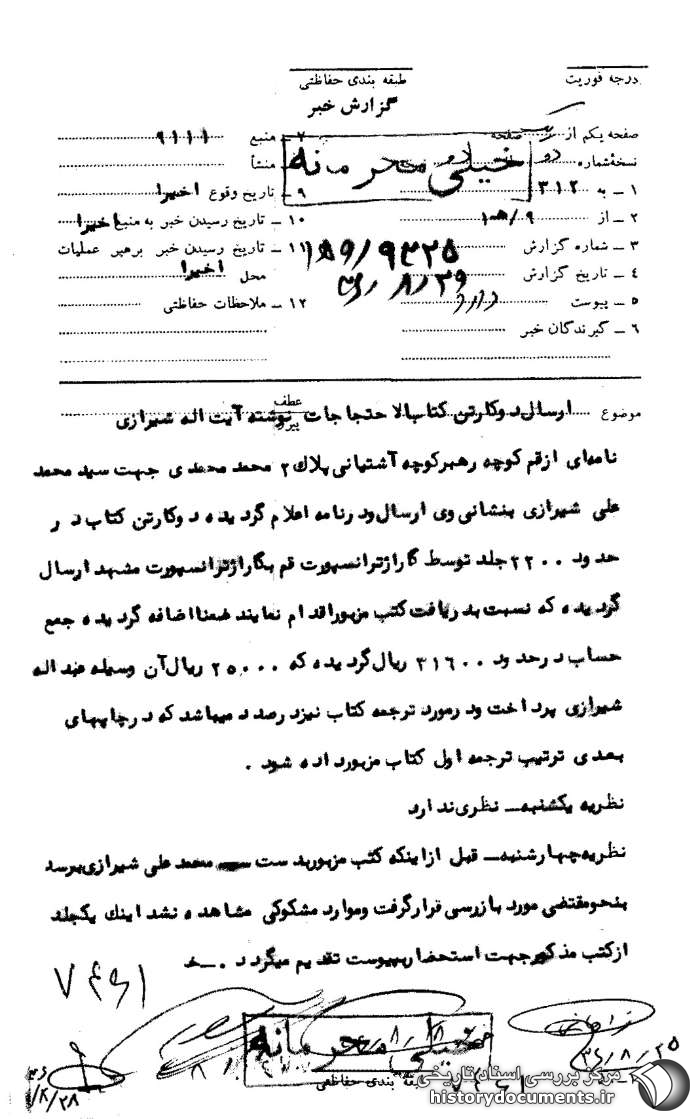 درجه فوریت
طبقه بندی حفاظتی
گزارش خبر
صفحه یکم از صفحه
نسخه شماره دو از دو
خیلی محرمانه
۱ ــ به ۳۱۲
۲ ــ از ۹/ﻫ۱
۳ ــ شماره گزارش ۹۳۲۵/ﻫ۱۹
۴ ــ تاریخ گزارش ۳۶/۸/۲۹
۵ ــ پیوست دارد
۶ ــ گیرندگان خبر
۷ ــ منبع ۹۱۱۱
منشأ
۹ ــ تاریخ وقوع اخیرا
۱۰ ــ تاریخ رسیدن خبر به منبع اخیرا
۱۱ ــ تاریخ رسیدن خبر برهبر عملیات
محل اخیرا
۱۲ ــ ملاحظات حفاظتی
موضوع ارسال دوکارتن کتاب الاحتجاجات نوشته آیت اله شیرازی
عطف
پیرو
نامه‌ای از قم کوچه رهبر کوچه آشتیانی پلاک ۲ محمد محمدی جهت سید محمد
علی شیرازی بنشانی وی ارسال و در نامه اعلام گردیده دوکارتن کتاب در
حدود ۲۲۰۰ جلد توسط گاراژ ترانسپورت قم بگاراژ ترانسپورت مشهد ارسال
گردیده که نسبت بدریافت کتب مزبور اقدام نمایند ضمنا اضافه گردیده جمع
حساب در حدود ۳۱۶۰۰ ریال گردیده که ۲۵۰۰۰ ریال آن وسیله عبداله
شیرازی پرداخت و در مورد ترجمه کتاب نیز در صدد میباشد که در چاپهای
بعدی ترتیب ترجمه اول کتاب مزبور داده شود .
نظریه یکشنبه ــ نظری ندارد
نظریه چهارشنبه ــ قبل از اینکه کتب مزبور بدست محمد علی شیرازی برسد
بنحو مقتضی مورد بازرسی قرار گرفت و موارد مشکوکی مشاهده نشد اینک یکجلد
از کتب مذکور جهت استحضار بپیوست تقدیم میگردد . ــ خ
خیلی محرمانه
طبقه بندی حفاظتی
۳۶/۸/۲۵
۸/۲۸
مرکز بررسی اسناد تاریخی
historydocuments.ir